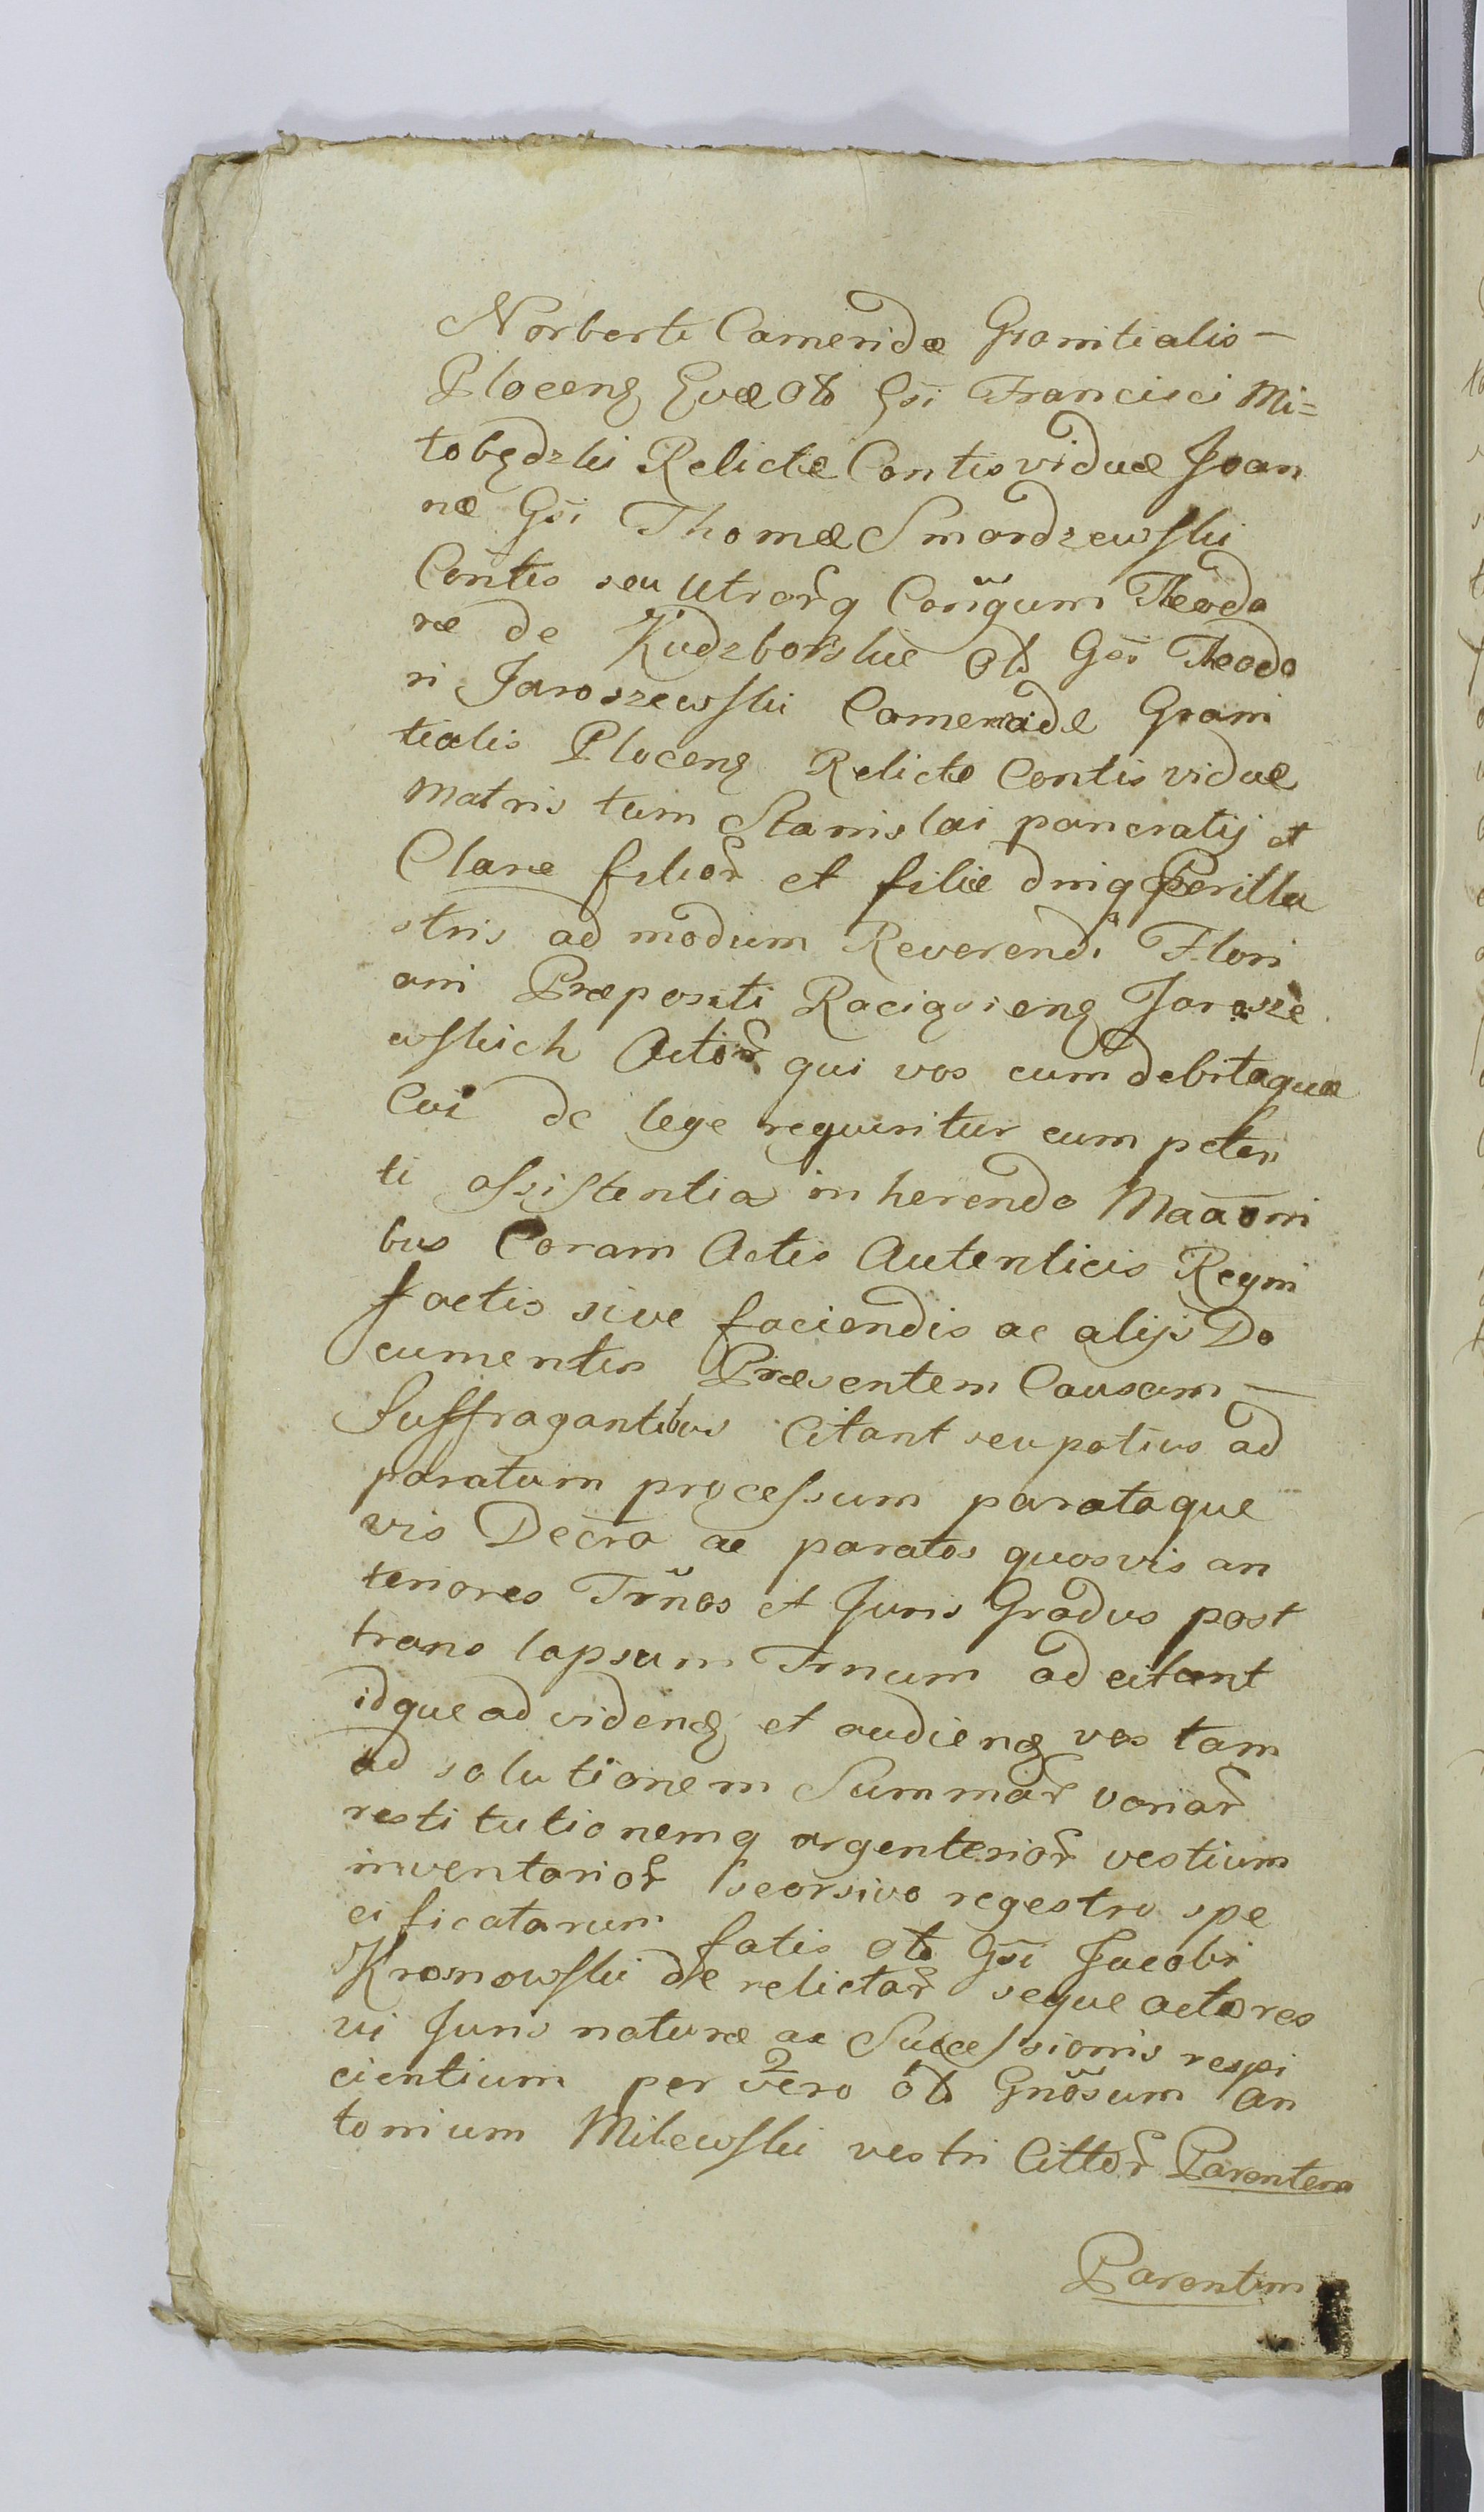 Norberti Cameridæ Granitialis —
Plocens Evæ Ob Gsi Francisci Mi=
tobędzki Relictæ Contis viduæ Joan
næ Gsi Thomæ Smardzewski
Contis seu Utrorq Conjgum Theodo
ræ de Kudzborskie Ob Gsi Theodo
ri Jaroszewski Cameridæ Grani
tialis Plocens Relictæ Contis viduæ
Matris tum Stanislai pancratij et
Claræ filior et filiæ dniq Perillu
stris ad modum Reverendi Flori
ani Præpositi Raciąsiens Jarosze
wskich Actor qui vos cum debita quæ
Cui de lege requiritur cum peten
ti assistentia inherendo Maaoni
bus Coram Actis Autenticis Regni
factis sive faciendis ac alijs Do
cumentis Præsentem Causam —
Suffragantibus Citant seu potius ad
paratum processum parataque
vis Decra ac paratos quosvis an
teriores Trnos et Juris Gradus post
trans lapsum Trnum ad citant
idque ad videns et audiens vos tam
ad solutionem Summar variar
restitutionemq argenterior vestium
inventarior seorsivo regestro spe
cificatarum fatis ob Gsi Jacobi
Krosnowski de relictar seque actores
vi Juris naturæ ac Successionis respi
cientium per 2 vero ob Gnosum An
tonium Milewski vestri Cittor Parentem
Parentem